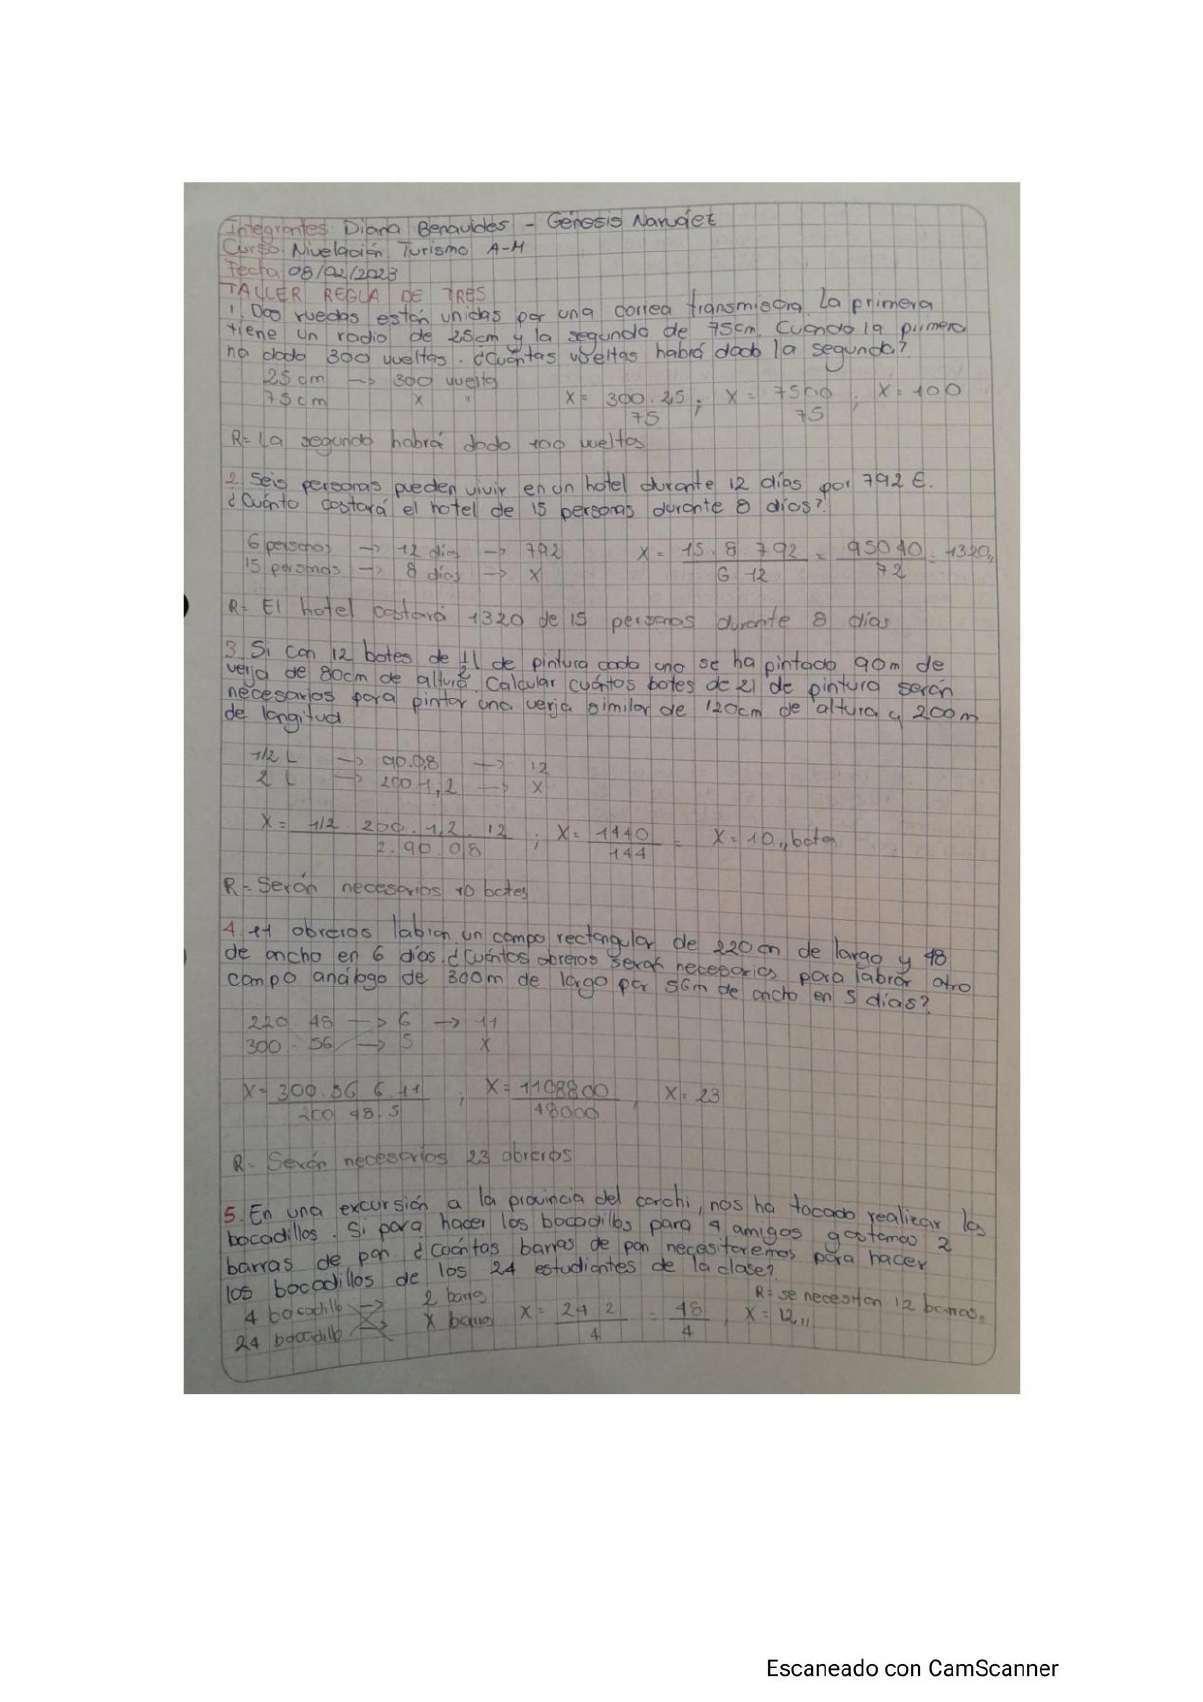 Integrantes: Diana Benavides - Génesis Narváez
Curso: Nivelación Turismo A-M
Fecha 08/02/2023
TALLER REGLA DE TRES
1. Dos ruedas están unidas por una correa transmisora. La primera
tiene un radio de 25cm y la segunda de 75cm. Cuando la primera
ha dado 300 vueltas. ¿Cuántas vueltas habrá dado la segunda?
25 cm → 300 vuelta
75cm x "
X = 300.25 / 75 ; X = 7500 / 75 ; X = 100
R= La segunda habrá dado 100 vueltas
2. Seis personas pueden vivir en un hotel durante 12 días por 792 €.
¿Cuánto costará el hotel de 15 personas durante 8 días?
6 personas → 12 días → 792
15 personas → 8 días → x
X = 15. 8. 792 / 6 12 = 95040 / 72 = 1320,
R= El hotel costará 1320 de 15 personas durante 8 días
3. Si con 12 botes de 1/2 l de pintura cada uno se ha pintado 90m de
verja de 80cm de altura. Calcular cuántos botes de 2l de pintura serán
necesarios para pintar una verja similar de 120cm de altura y 200m
de longitud
1/2 L → 90.0,8 → 12
2 L → 200.1,2 → x
X = 1/2. 200. 1,2. 12 / 2. 90. 0,8 ; X = 1440 / 144 = X = 10,, botes
R= Serán necesarios 10 botes
4. 11 obreros labran un campo rectangular de 220 cm de largo y 48
de ancho en 6 días. ¿Cuántos obreros serán necesarios para labrar otro
campo análogo de 300m de largo por 56m de ancho en 5 días?
220. 48 → 6 → 11
300. 56 → 5 x
X = 300. 56 6. 11 / 200 48. 5 ; X = 1108800 / 48000 , X = 23
R= Serán necesarios 23 obreros
5. En una excursión a la provincia del carchi, nos ha tocado realizar los
bocadillos. Si para hacer los bocadillos para 4 amigos gastamos 2
barras de pan ¿Cuántas barras de pan necesitaremos para hacer
los bocadillos de los 24 estudiantes de la clase?
4 bocadillo → 2 barras
24 bocadillo → x barras
X = 24 2 / 4 = 48 / 4 , X = 12,,
R= se necesitan 12 barras.
Escaneado con CamScanner